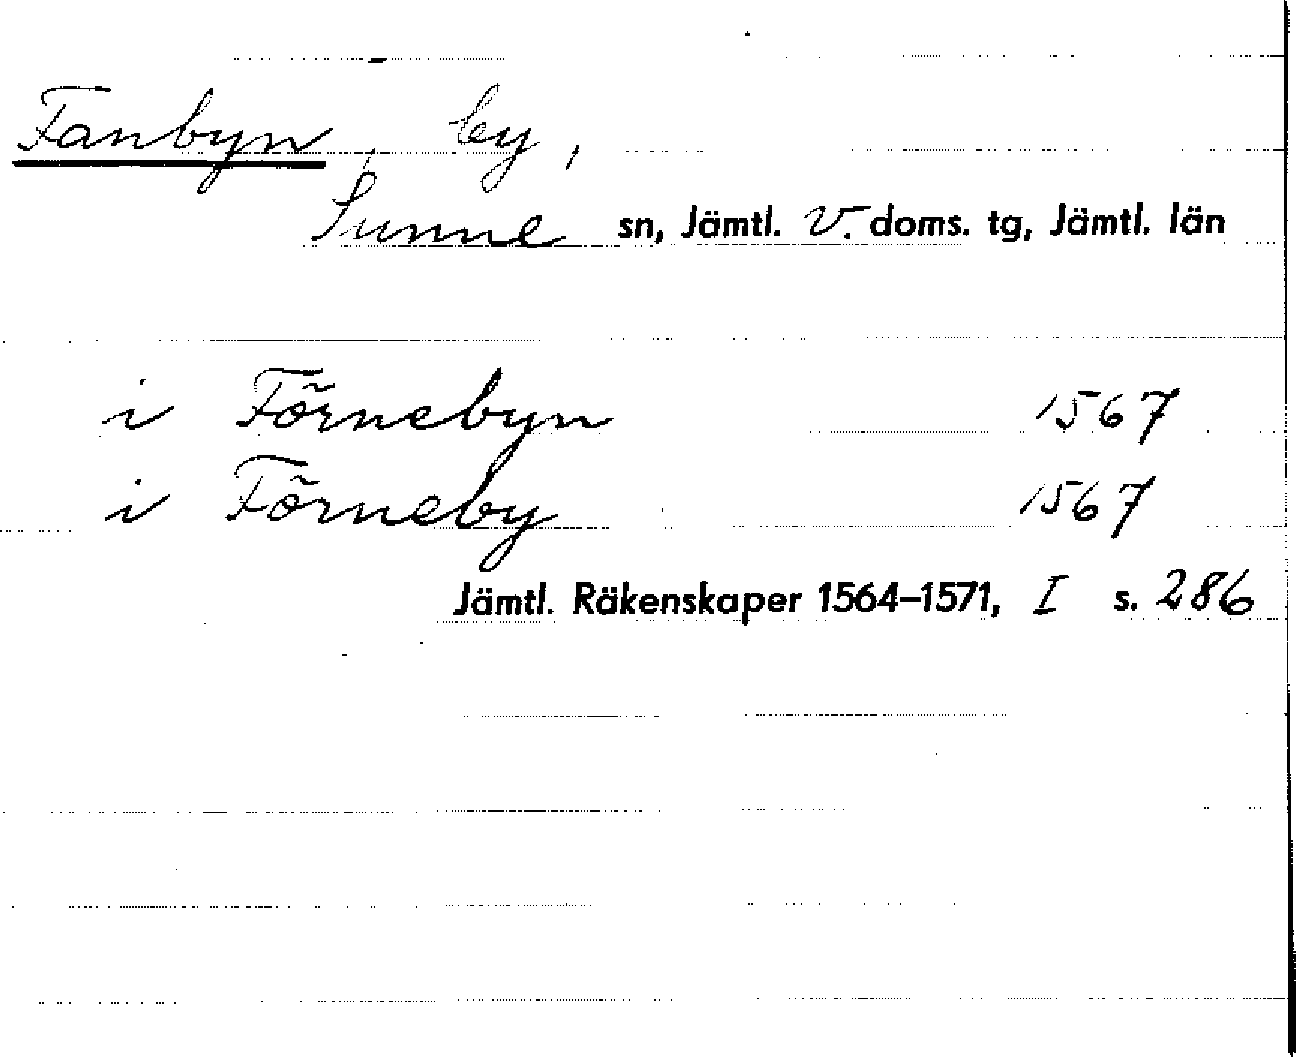 Fanbyn, by,
Sunne sn, Jämtl. V. doms. tg, Jämtl. län
i Förnebyn 1567
i Förneby 1567
Jämtl. Räkenskaper 1564–1571, I s. 286